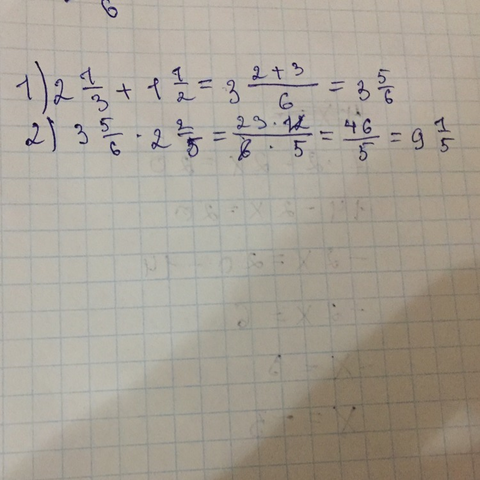 6
1) 2 1/3 + 1 1/2 = 3 (2+3)/6 = 3 5/6
2) 3 5/6 · 2 2/5 = (23 · 12)/(6 · 5) = 46/5 = 9 1/5